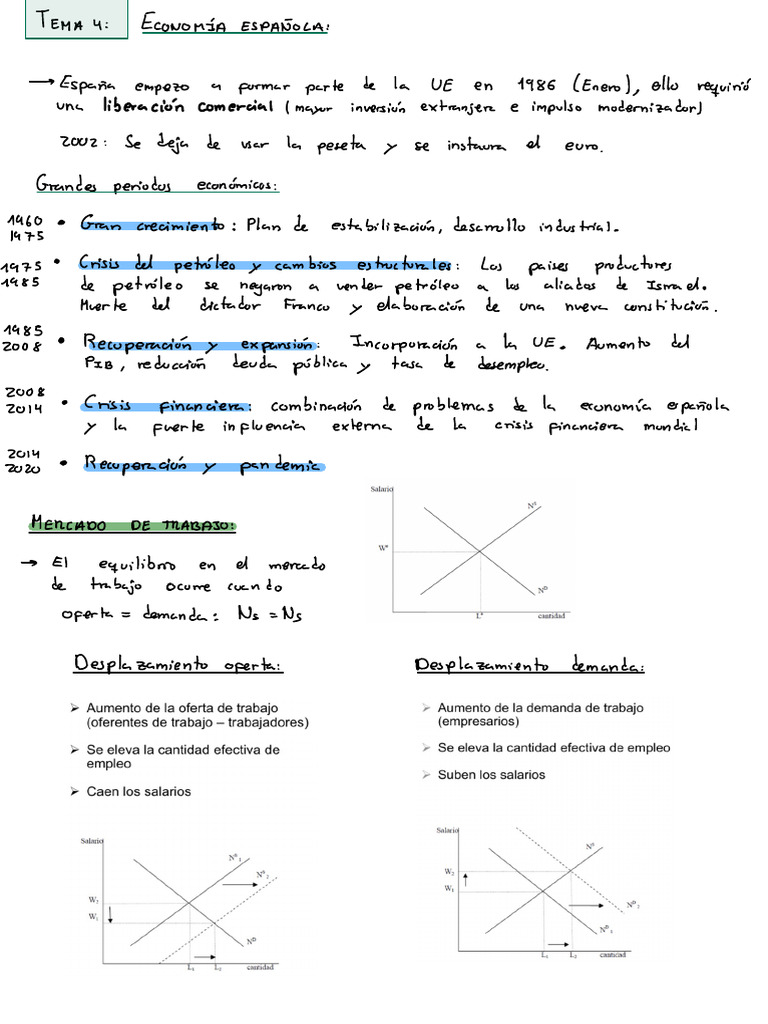 TEMA 4: ECONOMÍA ESPAÑOLA:
→ España empezo a formar parte de la UE en 1986 (Enero), ello requirió
una liberación comercial (mayor inversión extranjera e impulso modernizador)
2002: Se deja de usar la peseta y se instaura el euro.
Grandes periodos económicos:
1960
1975
• Gran crecimiento: Plan de estabilización, desarrollo industrial.
1975
1985
• Crisis del petróleo y cambios estructurales: Los paises productores
de petróleo se negaron a vender petróleo a los aliados de Israel.
Muerte del dictador Franco y elaboración de una nueva constitución.
1985
2008
• Recuperación y expansión: Incorporación a la UE. Aumento del
PIB, reducción deuda pública y tasa de desempleo.
2008
2014
• Crisis financiera: combinación de problemas de la economía española
y la fuerte influencia externa de la crisis financiera mundial
2014
2020
• Recuperación y pandemia
MERCADO DE TRABAJO:
→ El equilibrio en el mercado
de trabajo ocurre cuando
oferta = demanda: Ns = Ns
Salario
Nº
W*
Nᴰ
L*
cantidad
Desplazamiento oferta:
➤ Aumento de la oferta de trabajo
(oferentes de trabajo – trabajadores)
➤ Se eleva la cantidad efectiva de
empleo
➤ Caen los salarios
Salario
Nº₁
Nº₂
W₂
W₁
Nᴰ
L₁ L₂ cantidad
Desplazamiento demanda:
➤ Aumento de la demanda de trabajo
(empresarios)
➤ Se eleva la cantidad efectiva de empleo
➤ Suben los salarios
Salario
Nº
W₂
W₁
Nᴰ₂
Nᴰ₁
L₁ L₂ cantidad